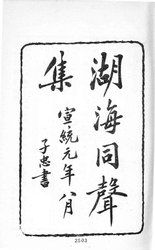 湖海同聲
集
宣統元年八月
子忠書
2503